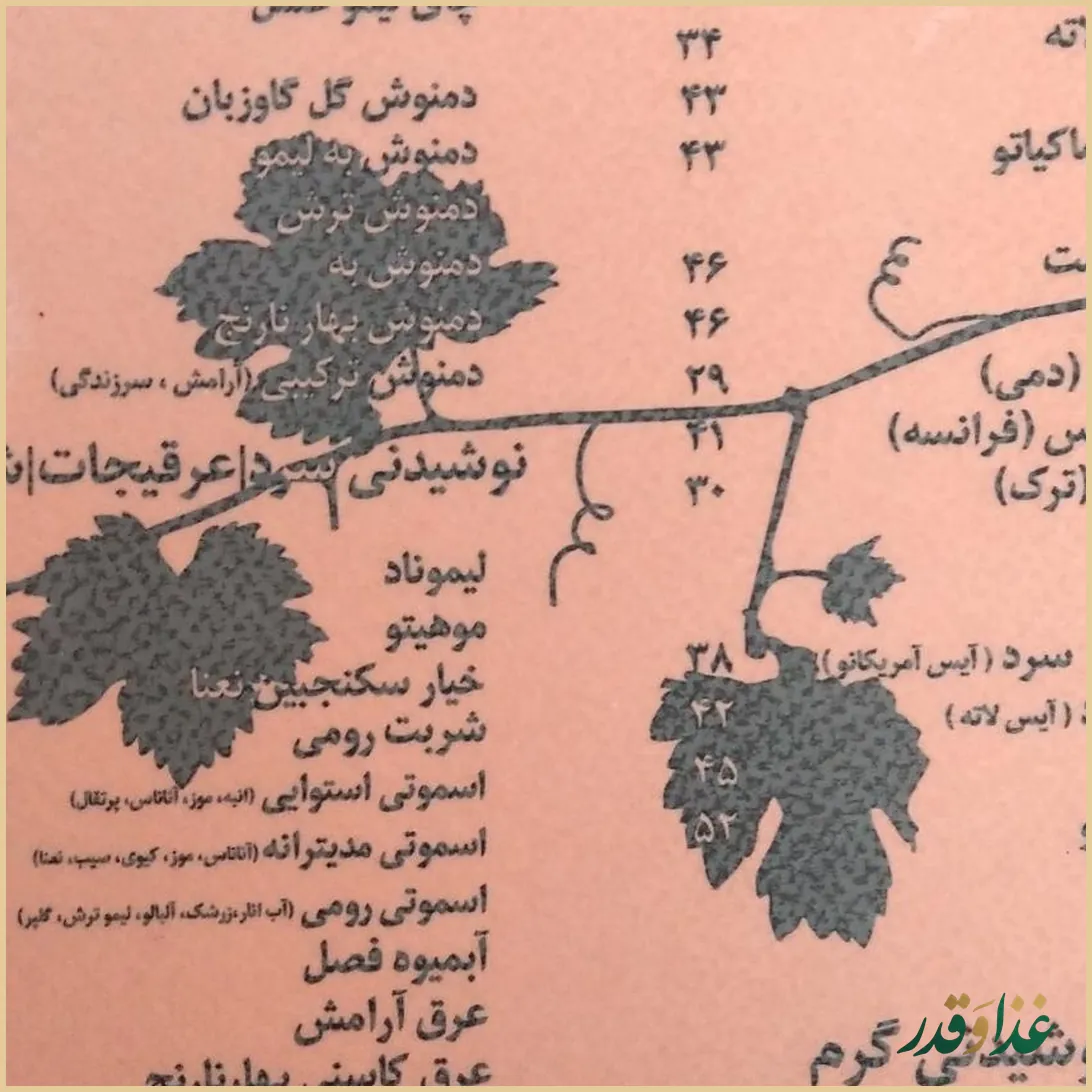 ۳۴
ماکیاتو ۴۳
۴۳
۴۶
۴۶
(دمی) ۲۹
(فرانسه) ۴۱
(ترک) ۳۰
سرد (آیس آمریکانو) ۳۸
(آیس لاته) ۴۲
۴۵
۵۲
نوشیدنی گرم
چای لیمو عسل
دمنوش گل گاوزبان
دمنوش به لیمو
دمنوش ترش
دمنوش به
دمنوش بهار نارنج
دمنوش ترکیبی (آرامش ، سرزندگی)
نوشیدنی سرد|عرقیجات|
لیموناد
موهیتو
خیار سکنجبین نعنا
شربت رومی
اسموتی استوایی (انبه، موز، آناناس، پرتقال)
اسموتی مدیترانه (آناناس، موز، کیوی، سیب، نعنا)
اسموتی رومی (آب انار،زرشک، آلبالو، لیمو ترش، گلپر)
آبمیوه فصل
عرق آرامش
عرق کاسنی بهارنارنج
غذا و قدر